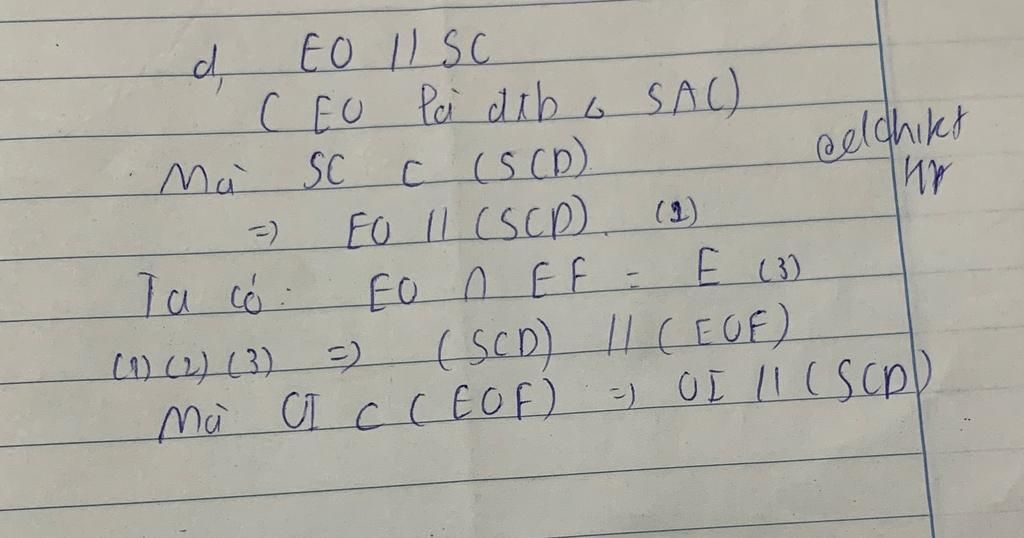 d, EO // SC
( EO là đtb △ SAC)
Mà SC ⊂ (SCD)
=> EO // (SCD). (2)
Ta có: EO ∩ EF = E (3)
(1) (2) (3) => (SCD) // (EOF)
Mà OI ⊂ (EOF) => OI // (SCD)